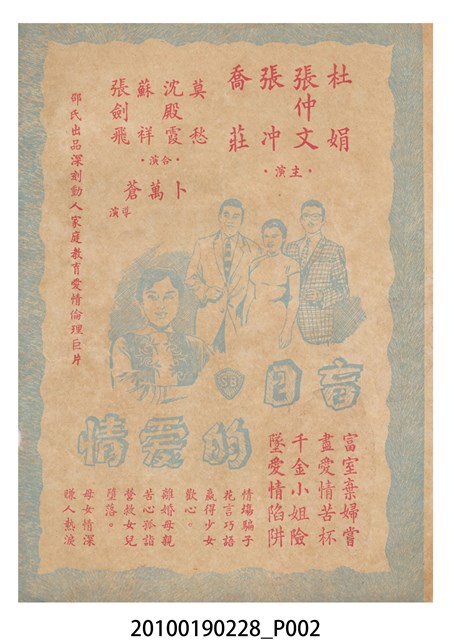 杜娟
張仲文
張冲
喬莊
·主演·
莫愁
沈殿霞
蘇祥
張劍飛
·合演·
卜萬蒼
導演
邵氏出品深刻動人家庭教育愛情倫理巨片
SB
盲目
的愛情
富室棄婦嘗
盡愛情苦杯
千金小姐險
墜愛情陷阱
情場騙子
花言巧語
贏得少女
歡心。
離婚母親
苦心孤詣
營救女兒
墮落。
母女情深
賺人熱淚
20100190228_P002